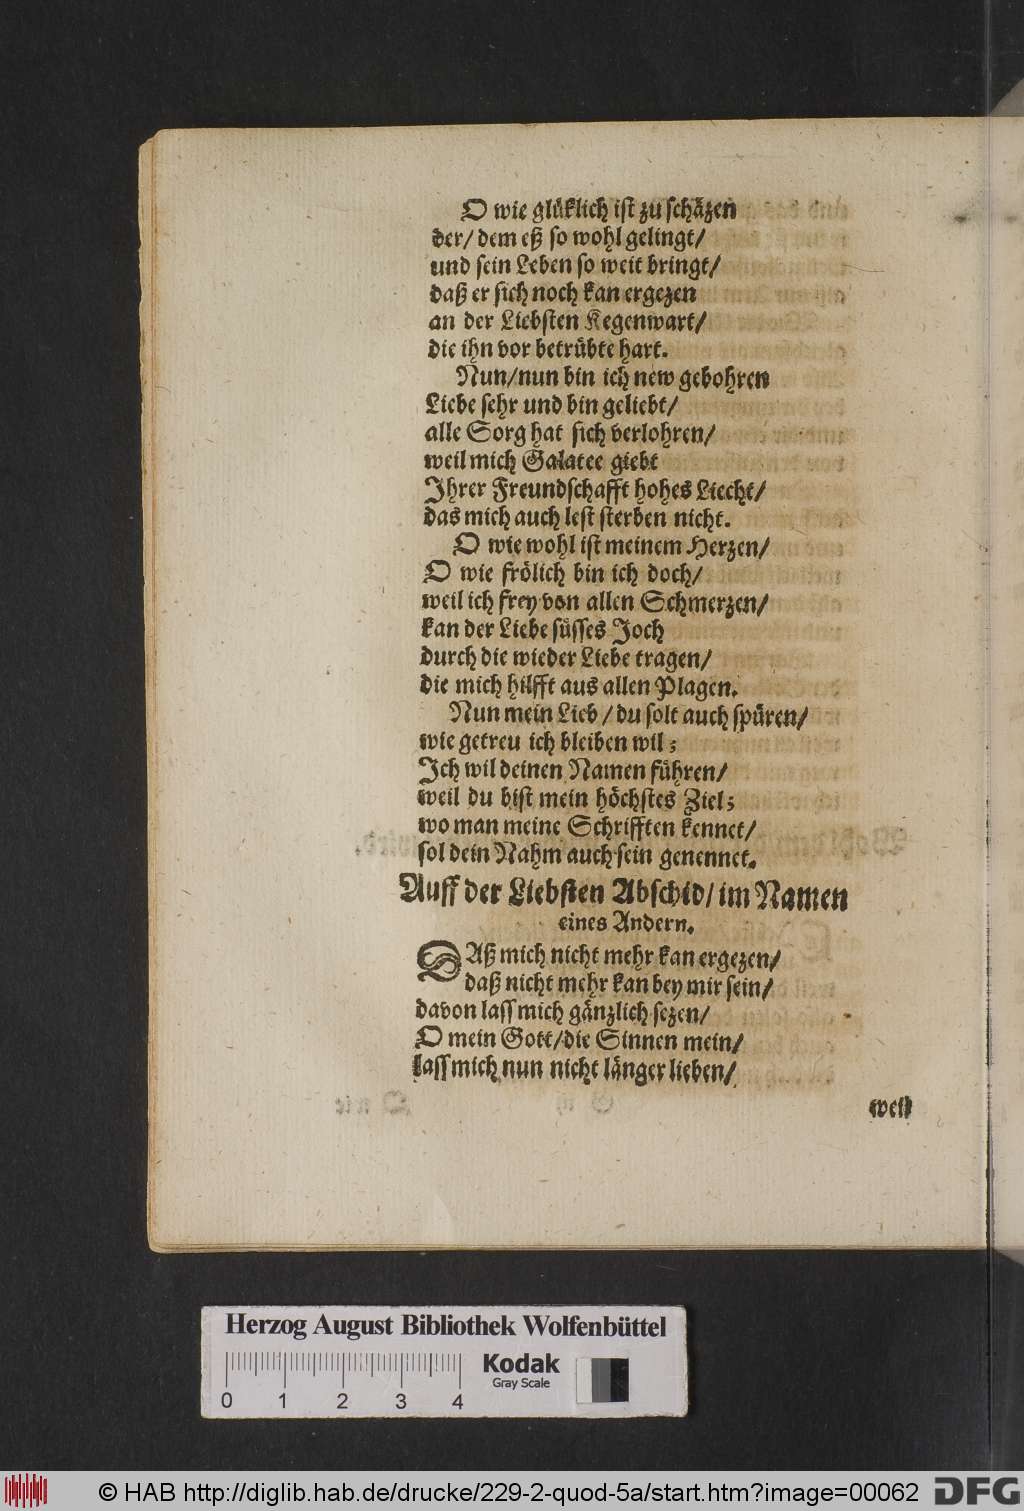 O wie glüklich ist zu schäzen
der/ dem eß so wohl gelingt/
und sein Leben so weit bringt/
daß er sich noch kan ergezen
an der Liebsten Kegenwart/
die ihn vor betrübte hart.
Nun/nun bin ich new gebohren
Liebe sehr und bin geliebt/
alle Sorg hat sich verlohren/
weil mich Galatee giebt
Ihrer Freundschafft hohes Liecht/
das mich auch lest sterben nicht.
O wie wohl ist meinem Herzen/
O wie frölich bin ich doch/
weil ich frey von allen Schmerzen/
kan der Liebe süsses Joch
durch die wieder Liebe tragen/
die mich hilfft aus allen Plagen.
Nun mein Lieb / du solt auch spüren/
wie getreu ich bleiben wil;
Ich wil deinen Namen führen/
weil du bist mein höchstes Ziel;
wo man meine Schrifften kennet/
sol dein Nahm auch sein genennet.
Auff der Liebsten Abschid/ im Namen
eines Andern.
DAß mich nicht mehr kan ergezen/
daß nicht mehr kan bey mir sein/
davon lass mich gänzlich sezen/
O mein Gott/die Sinnen mein/
lass mich nun nicht länger lieben/
weil
Herzog August Bibliothek Wolfenbüttel
Kodak
Gray Scale
0 1 2 3 4
© HAB http://diglib.hab.de/drucke/229-2-quod-5a/start.htm?image=00062
DFG